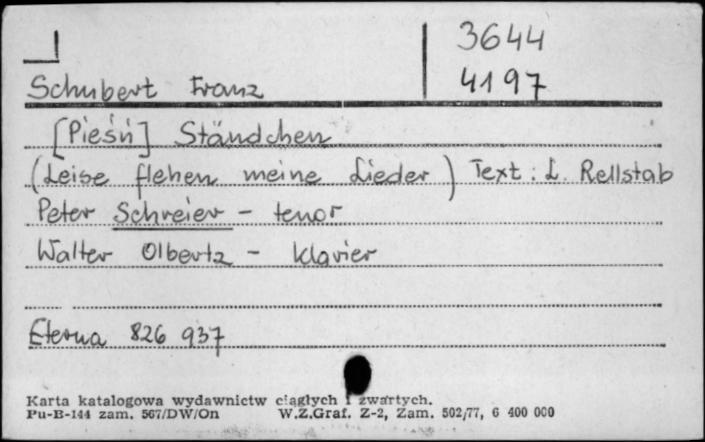 3644
4197
Schubert Franz
[Pieśń] Ständchen
(Leise flehen meine Lieder) Text : L. Rellstab
Peter Schreier - tenor
Walter Olbertz - Klavier
Eterna 826 937
Karta katalogowa wydawnictw ciągłych i zwartych.
Pu-B-144 zam. 567/DW/On W.Z.Graf. Z-2, Zam. 502/77, 6 400 000